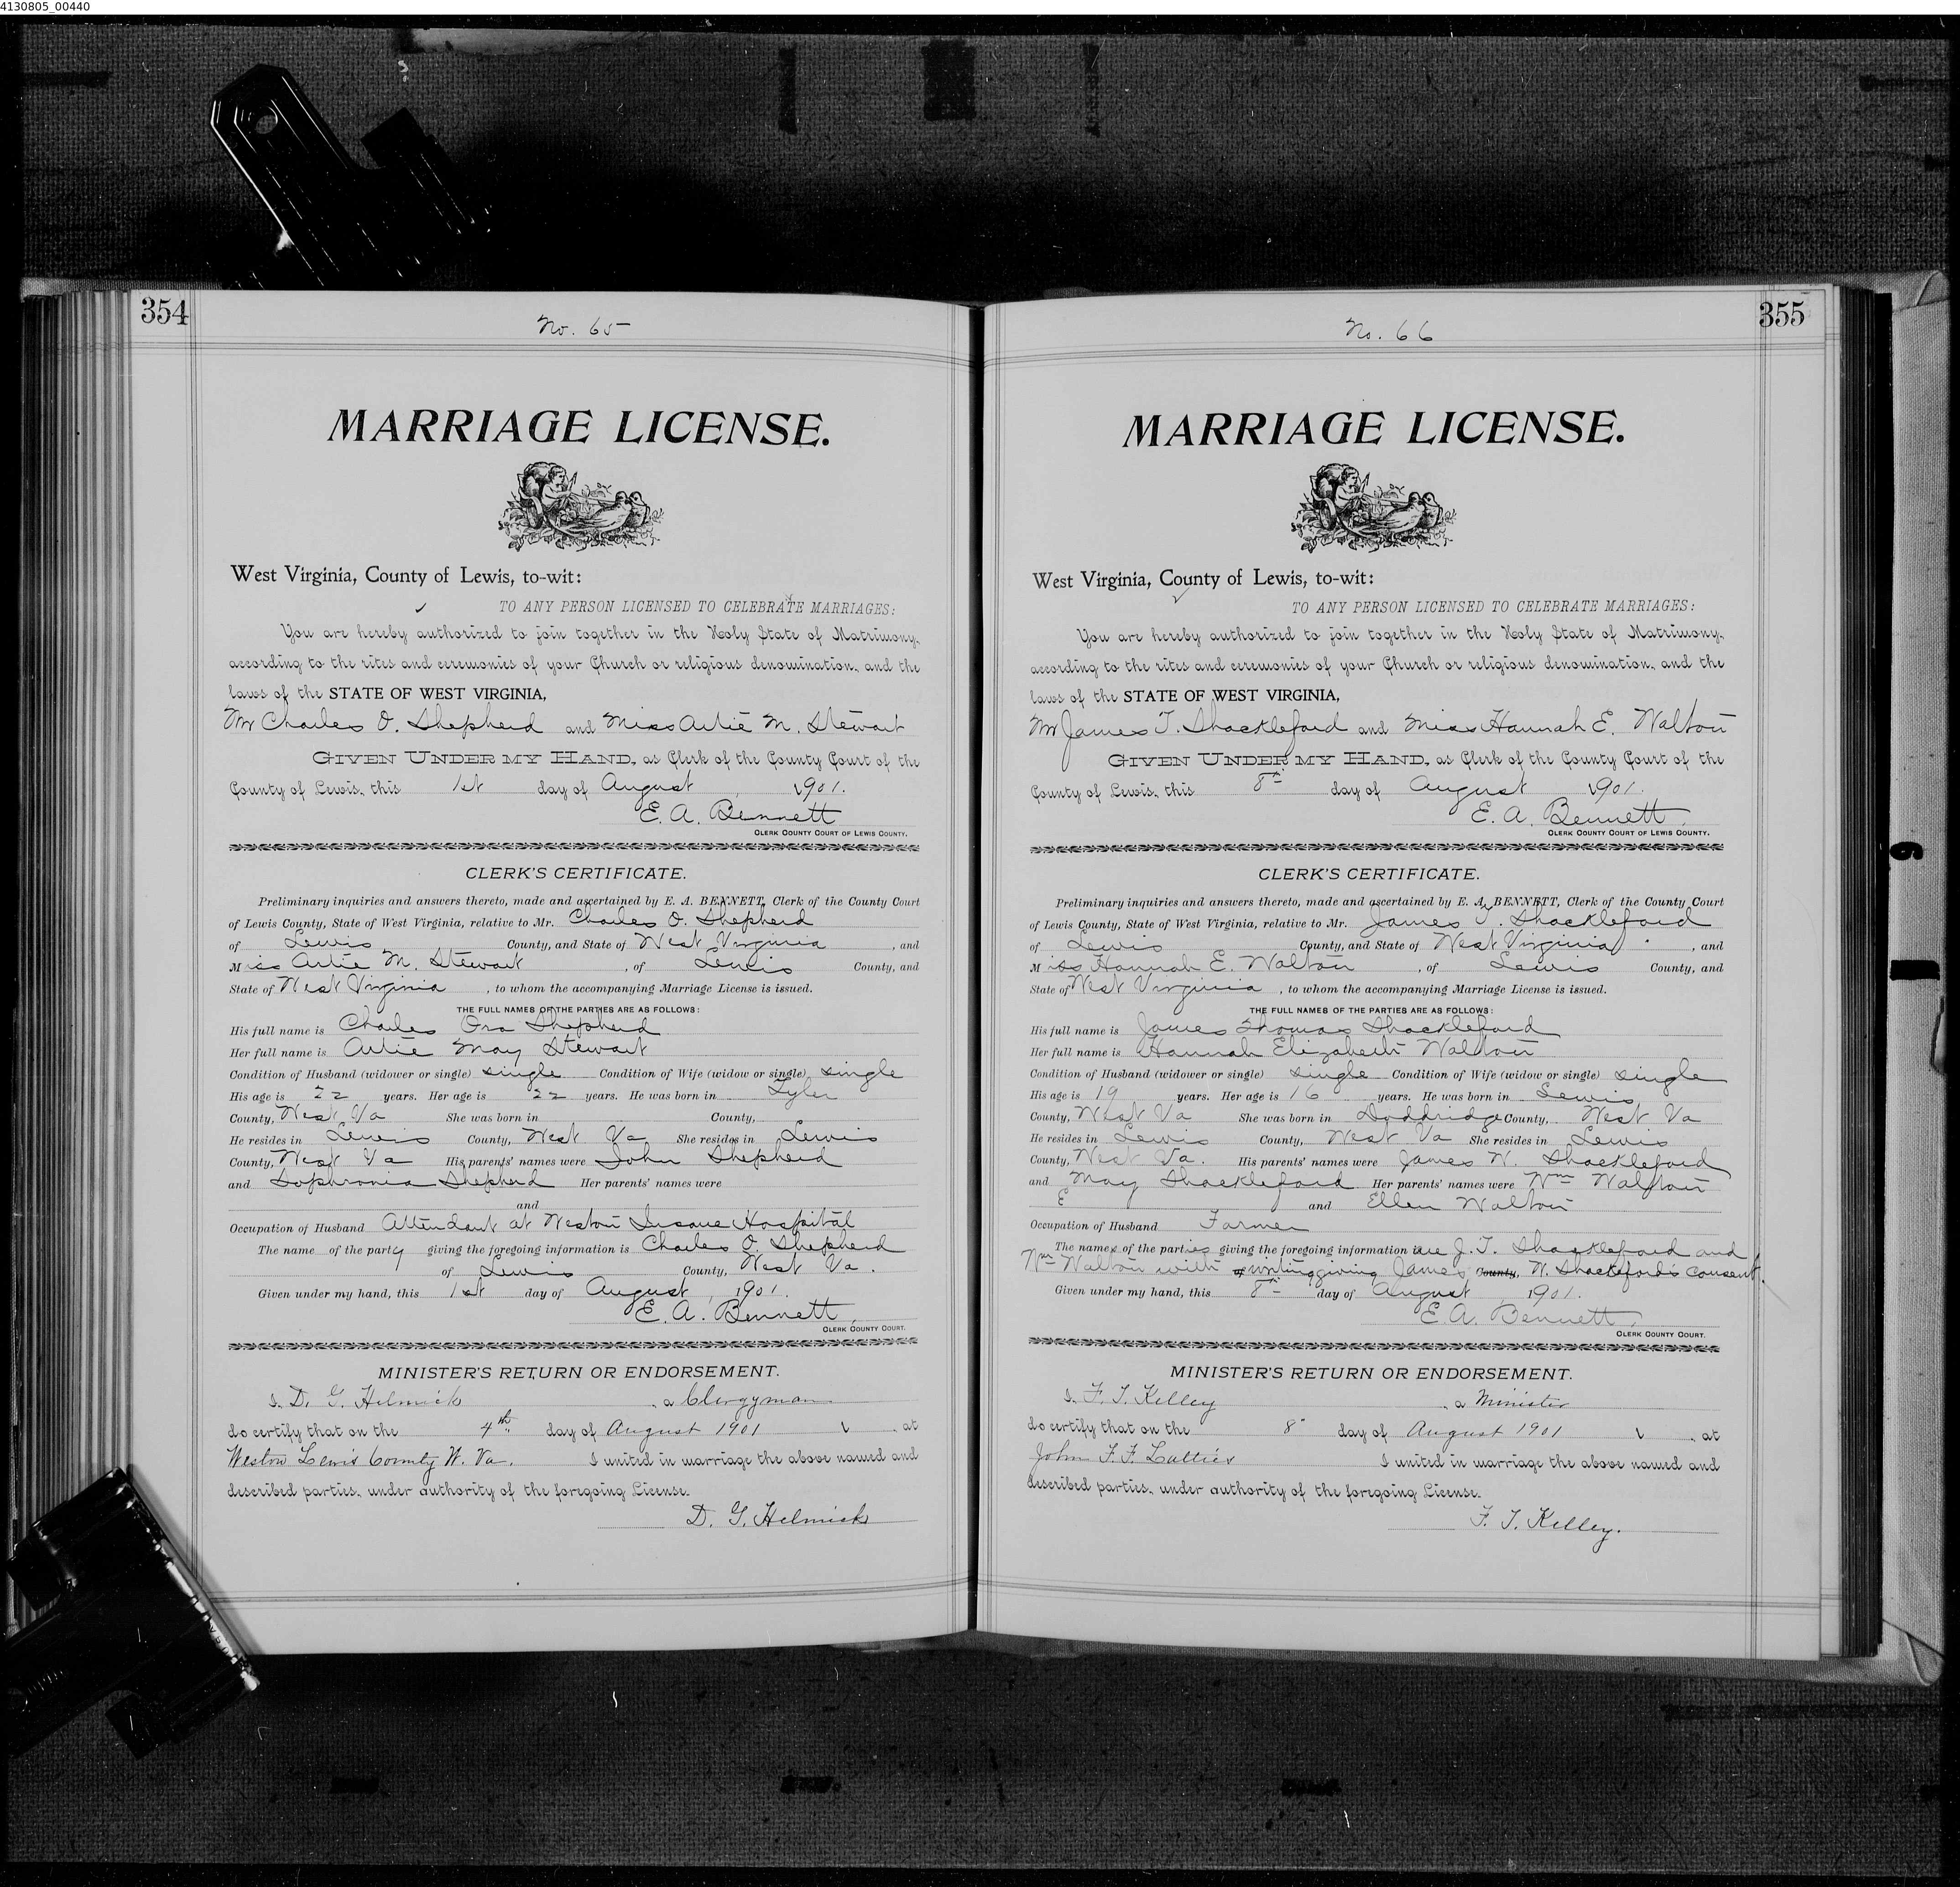 4130805_00440
354
No. 65
MARRIAGE LICENSE.
West Virginia, County of Lewis, to-wit:
TO ANY PERSON LICENSED TO CELEBRATE MARRIAGES:
You are hereby authorized to join together in the Holy State of Matrimony,
according to the rites and ceremonies of your Church or religious denomination, and the
laws of the STATE OF WEST VIRGINIA,
Mr Charles O. Shepherd and Miss Artie M. Stewart
GIVEN UNDER MY HAND, as Clerk of the County Court of the
County of Lewis, this 1st day of August, 1901.
E. A. Bennett
CLERK COUNTY COURT OF LEWIS COUNTY.
CLERK'S CERTIFICATE.
Preliminary inquiries and answers thereto, made and ascertained by E. A. BENNETT, Clerk of the County Court
of Lewis County, State of West Virginia, relative to Mr. Charles O. Shepherd
of Lewis County, and State of West Virginia, and
Miss Artie M. Stewart, of Lewis County, and
State of West Virginia, to whom the accompanying Marriage License is issued.
THE FULL NAMES OF THE PARTIES ARE AS FOLLOWS:
His full name is Charles Ora Shepherd
Her full name is Artie May Stewart
Condition of Husband (widower or single) single Condition of Wife (widow or single) single
His age is 22 years. Her age is 22 years. He was born in Tyler
County, West Va She was born in County,
He resides in Lewis County, West Va She resides in Lewis
County, West Va His parents' names were John Shepherd
and Sophronia Shepherd Her parents' names were
and
Occupation of Husband Attendant at Weston Insane Hospital
The name of the party giving the foregoing information is Charles O. Shepherd
of Lewis County, West Va.
Given under my hand, this 1st day of August, 1901.
E. A. Bennett,
CLERK COUNTY COURT.
MINISTER'S RETURN OR ENDORSEMENT.
I, D. G. Helmick, a Clergyman
do certify that on the 4th day of August 1901, at
Weston Lewis County W. Va. I united in marriage the above named and
described parties, under authority of the foregoing License.
D. G. Helmick
355
No. 66
MARRIAGE LICENSE.
West Virginia, County of Lewis, to-wit:
TO ANY PERSON LICENSED TO CELEBRATE MARRIAGES:
You are hereby authorized to join together in the Holy State of Matrimony,
according to the rites and ceremonies of your Church or religious denomination, and the
laws of the STATE OF WEST VIRGINIA,
Mr James T. Shackleford and Miss Hannah E. Walton
GIVEN UNDER MY HAND, as Clerk of the County Court of the
County of Lewis, this 8th day of August 1901.
E. A. Bennett,
CLERK COUNTY COURT OF LEWIS COUNTY.
CLERK'S CERTIFICATE.
Preliminary inquiries and answers thereto, made and ascertained by E. A. BENNETT, Clerk of the County Court
of Lewis County, State of West Virginia, relative to Mr. James T. Shackleford
of Lewis County, and State of West Virginia, and
Miss Hannah E. Walton, of Lewis County, and
State of West Virginia, to whom the accompanying Marriage License is issued.
THE FULL NAMES OF THE PARTIES ARE AS FOLLOWS:
His full name is James Thomas Shackleford
Her full name is Hannah Elizabeth Walton
Condition of Husband (widower or single) single Condition of Wife (widow or single) single
His age is 19 years. Her age is 16 years. He was born in Lewis
County, West Va She was born in Doddridge County, West Va
He resides in Lewis County, West Va She resides in Lewis
County, West Va. His parents' names were James W. Shackleford
and May Shackleford Her parents' names were Wm Walton
E and Ellen Walton
Occupation of Husband Farmer
The names of the parties giving the foregoing information are J. T. Shackleford and
Wm Walton with writing giving James County, W. Shackleford's consent.
Given under my hand, this 8th day of August, 1901.
E. A. Bennett,
CLERK COUNTY COURT.
MINISTER'S RETURN OR ENDORSEMENT.
I, F. T. Kelley, a Minister
do certify that on the 8" day of August 1901, at
John F. F. I united in marriage the above named and
described parties, under authority of the foregoing License.
F. T. Kelley.